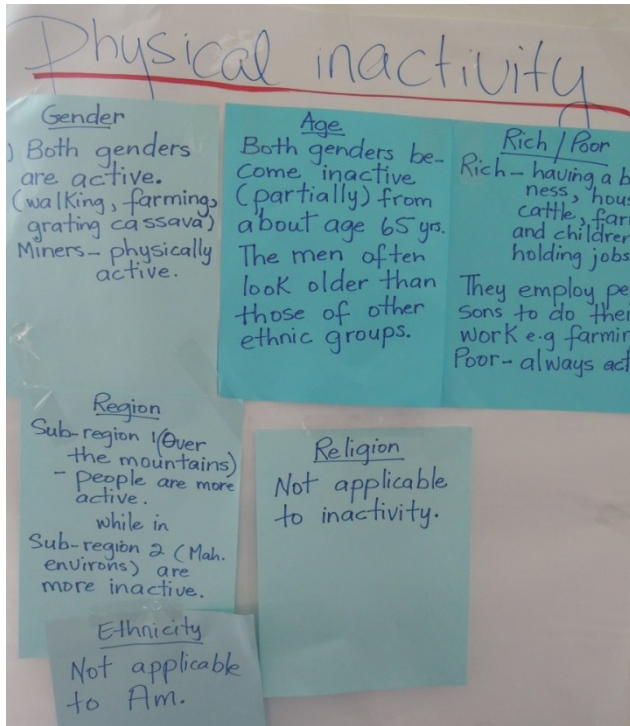 Physical inactivity
Gender
) Both genders
are active.
(walking, farming,
grating cassava)
Miners - physically
active.
Age
Both genders be-
come inactive
(partially) from
about age 65 yrs.
The men often
look older than
those of other
ethnic groups.
Rich / Poor
Rich - having a b
ness, hous
cattle, far
and children
holding jobs
They employ pe
sons to do thei
work e.g farmin
Poor - always act
Region
Sub-region 1 (Over
the mountains)
- people are more
active.
while in
Sub-region 2 (Mah.
environs) are
more inactive.
Religion
Not applicable
to inactivity.
Ethnicity
Not applicable
to Am.